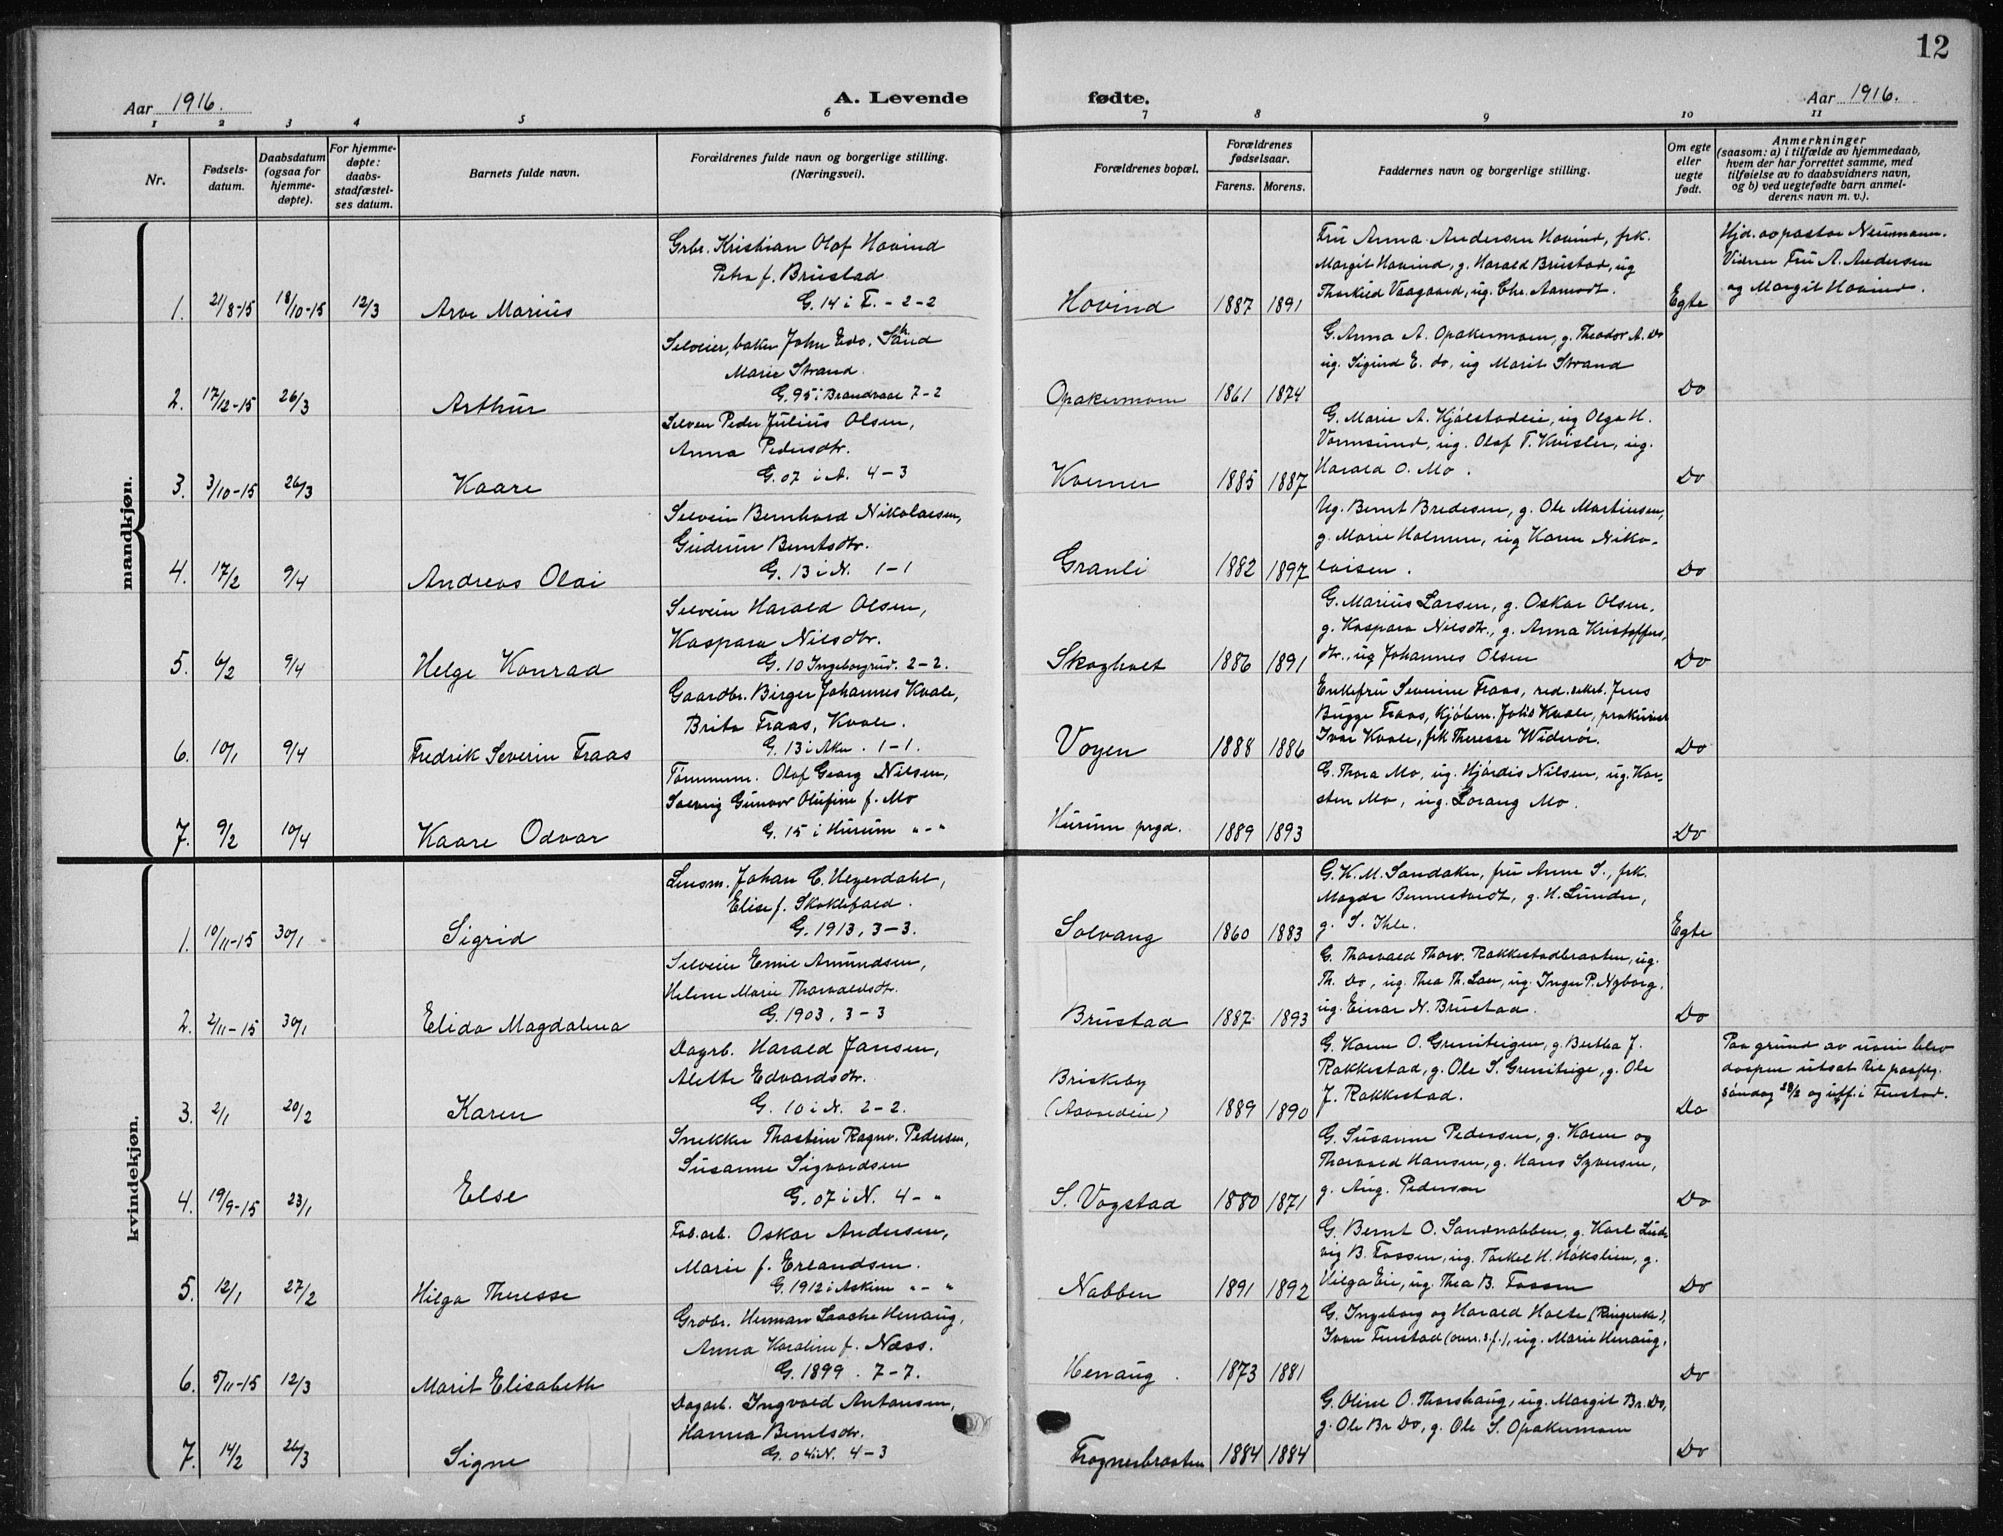 12
Aar 1916.
A. Levende
fødte.
Aar 1916.
1 2 3 4 5 6 7 8 9 10 11
Nr.
Fødsels-
datum.
Daabsdatum
(ogsaa for
hjemme-
døpte).
For hjemme-
døpte:
daabs-
stadfæstel-
ses datum.
Barnets fulde navn.
Forældrenes fulde navn og borgerlige stilling.
(Næringsvei).
Forældrenes bopæl.
Forældrenes
fødselsaar.
Farens. Morens.
Faddernes navn og borgerlige stilling.
Om egte
eller
uegte
født.
Anmerkninger
(saasom: a) i tilfælde av hjemmedaab,
hvem der har forrettet samme, med
tilføielse av to daabsvidners navn,
og b) ved uegtefødte barn anmel-
derens navn m. v.).
maandkjøn.
Grbr. Kristian Olaf Hovind
Petra f. Brustad
G. 14 i F. - 2-2
1. 21/8-15 18/10-15 12/3 Arve Marius
Hovind 1887 1891
Fru Anna Andersen Hovind, frk.
Margit Hovind, g. Harald Brustad, ug
Thorkild Vaagaard, ug. Chr. Aamodt.
Egte
Hjd. av pastor Neumann.
Vidner Fru A. Andersen
og Margit Hovind.
Selveier, baker John Edv. Strand
Marie Strand.
G. 95 i Brandvaal 7-2
2. 17/12-15 26/3 Arthur
Opakermoen 1861 1874
G. Anna A. Opakermoen, g. Theodor A. Do
ug. Sigurd E. do, ug Marit Strand
Do
Selveier Peder Julius Olsen,
Anna Pedersdtr.
G. 07 i A. 4-3
3. 3/10-15 26/3 Kaare
Kverner 1885 1887
G. Marie A. Hjølstadeie, ug Olga H.
Vormsund, ug. Olaf T. Kvisler, ug.
Harald O. Mo.
Do
Selveier Bernhard Nikolaisen,
Gudrun Berntsdtr.
G. 13 i N. 1-1
4. 17/2 9/4 Andreas Olai
Granli 1882 1897
Ug. Bernt Bredesen, g. Ole Martinsen,
g. Marie Holmen, ug Karen Niko-
laisen.
Do
Selveier Harald Olsen,
Kaspara Nilsdtr.
G. 10 Ingeborgrud. 2-2.
5. 6/2 9/4 Helge Konrad
Skogholt 1886 1891
G. Marius Larsen, g. Oskar Olsen,
g. Kaspara Nilsdtr., g. Anna Kristoffers-
dtr., ug Johannes Olsen
Do
Gaardbr. Birger Johannes Kvale,
Brita Fraas, Kvale.
G. 13 i Aker. 1-1.
6. 10/1 9/4 Fredrik Severin Fraas
Voyen 1888 1886
Enkefru Severine Fraas, red. sekret. Jens
Bugge Fraas, Kjøbm. Johs Kvale, prokurist
Ivar Kvale, frk Therese Widerøe.
Do
Tømmerm. Olaf Georg Nilsen,
Solveig Gunvor Olufine f. Mo
G. 15 i Hurum "-"
7. 9/2 10/4 Kaare Odvar
Hurum prgd. 1889 1893
G. Thora Mo, ug. Hjørdis Nilsen, ug. Kar-
sten Mo, ug. Lorang Mo.
Do
kvindekjøn.
Lensm. Johan C. Hegerdahl,
Elise f. Skoklefald.
G. 1913, 3-3.
1. 10/11-15 30/1 Sigrid
Solvang 1860 1883
G. K. M. Sandaker, fru Anne S., frk.
Magda Bennestvedt, g. H. Lunder,
g. S. Ihle.
Egte
Selveier Emil Amundsen,
Helene Marie Thorvaldsdtr.
G. 1903, 3-3
2. 2/11-15 30/1 Elida Magdalena
Brustad 1887 1893
G. Thorvald Thorv. Rakkestadbraaten, ug.
Th. Do, ug. Thea Th. Lau, ug. Inger P. Nyborg,
ug. Einar N. Brustad.
Do
Dagarb. Harald Jansen,
Alette Edvardsdtr.
G. 10 i N. 2-2.
3. 2/1 20/2 Karen
Briskeby
(Aavaldeie) 1889 1890
G. Karen O. Grenistigen, g. Bertha J.
Rakkestad, g. Ole S. Grenistige, g. Ole
J. Rakkestad.
Do
Paa grund av uveir blev
daapen utsat til paafølg.
søndag 28/2 og utf. i Finstad.
Snekker Thorstein Ragnv. Pedersen,
Susanne Sigvardsen
G. 07 i N. 4-"
4. 19/9-15 23/1 Else
S. Vogstad 1880 1871
G. Susanne Pedersen, g. Karen og
Thorvald Hansen, g. Hans Syversen,
g. Aug. Pedersen
Do
Fab.arb. Oskar Andersen,
Marie f. Erlandsen.
G. 1912 i Askim "-"
5. 12/1 27/2 Hilga Theresse
Nabben 1891 1892
G. Bernt O. Sandnabben, g. Karl Lud-
vig B. Fossen, ug. Torkel H. Høkslien, g.
Hilga Eie, ug. Thea B. Fossen
Do
Grdbr. Herman Laache Henaug,
Anna Karoline f. Næss.
G. 1899. 7-7.
6. 5/11-15 12/3 Marit Elisabeth
Henaug. 1873 1881
G. Ingeborg og Harald Holte (Ringerike),
Ivar Finstad (overs. f.), ug. Marie Henaug,
Do
Dagarb. Ingvald Antonsen,
Hanna Berntsdtr.
G. 04 i N. 4-3
7. 14/2 26/3 Signe
Frognerbraaten 1884 1884
G. Oline O. Thorshaug, ug. Margit Br. Do,
g. Ole Br Do, g. Ole S. Opakermoen
Do